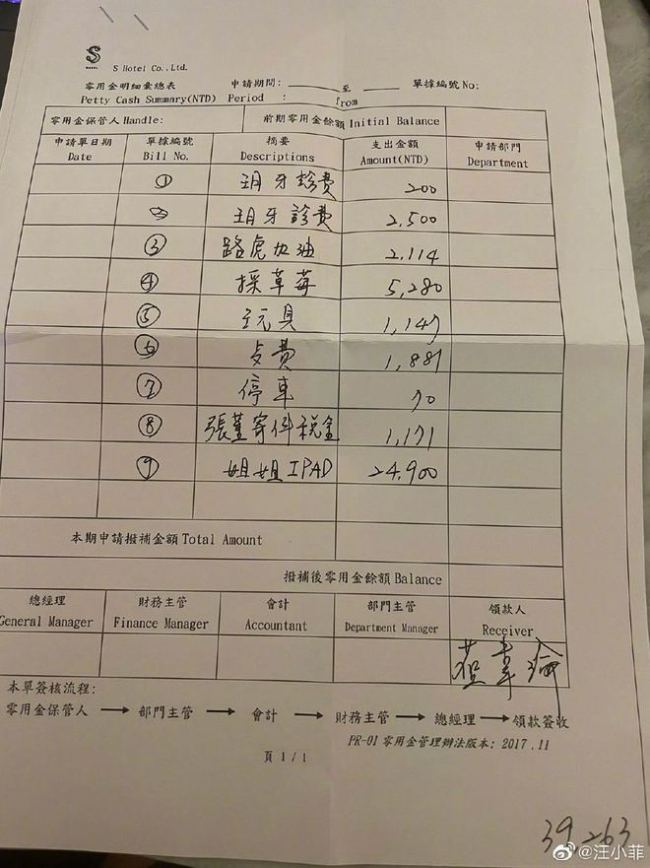 S
S Hotel Co., Ltd.
零用金明細彙總表 申請期間: 至 單據編號No:
Petty Cash Summary(NTD) Period : from
零用金保管人Handle: 前期零用金餘額Initial Balance
申請單日期 單據編號 摘要 支出金額 申請部門
Date Bill No. Descriptions Amount(NTD) Department
① 玥牙診費 200
② 玥牙診費 2,500
③ 路虎加油 2,114
④ 採草莓 5,280
⑤ 玩具 1,147
⑥ 費 1,881
⑦ 停車 70
⑧ 張董寄件稅金 1,171
⑨ 姐姐IPAD 24,900
本期申請撥補金額Total Amount
撥補後零用金餘額Balance
總經理 財務主管 會計 部門主管 領款人
General Manager Finance Manager Accountant Department Manager Receiver
韋
本單簽核流程:
零用金保管人 → 部門主管 → 會計 → 財務主管 → 總經理 → 領款簽收
PR-01 零用金管理辦法版本: 2017.11
頁 1/1
39,263
@汪小菲